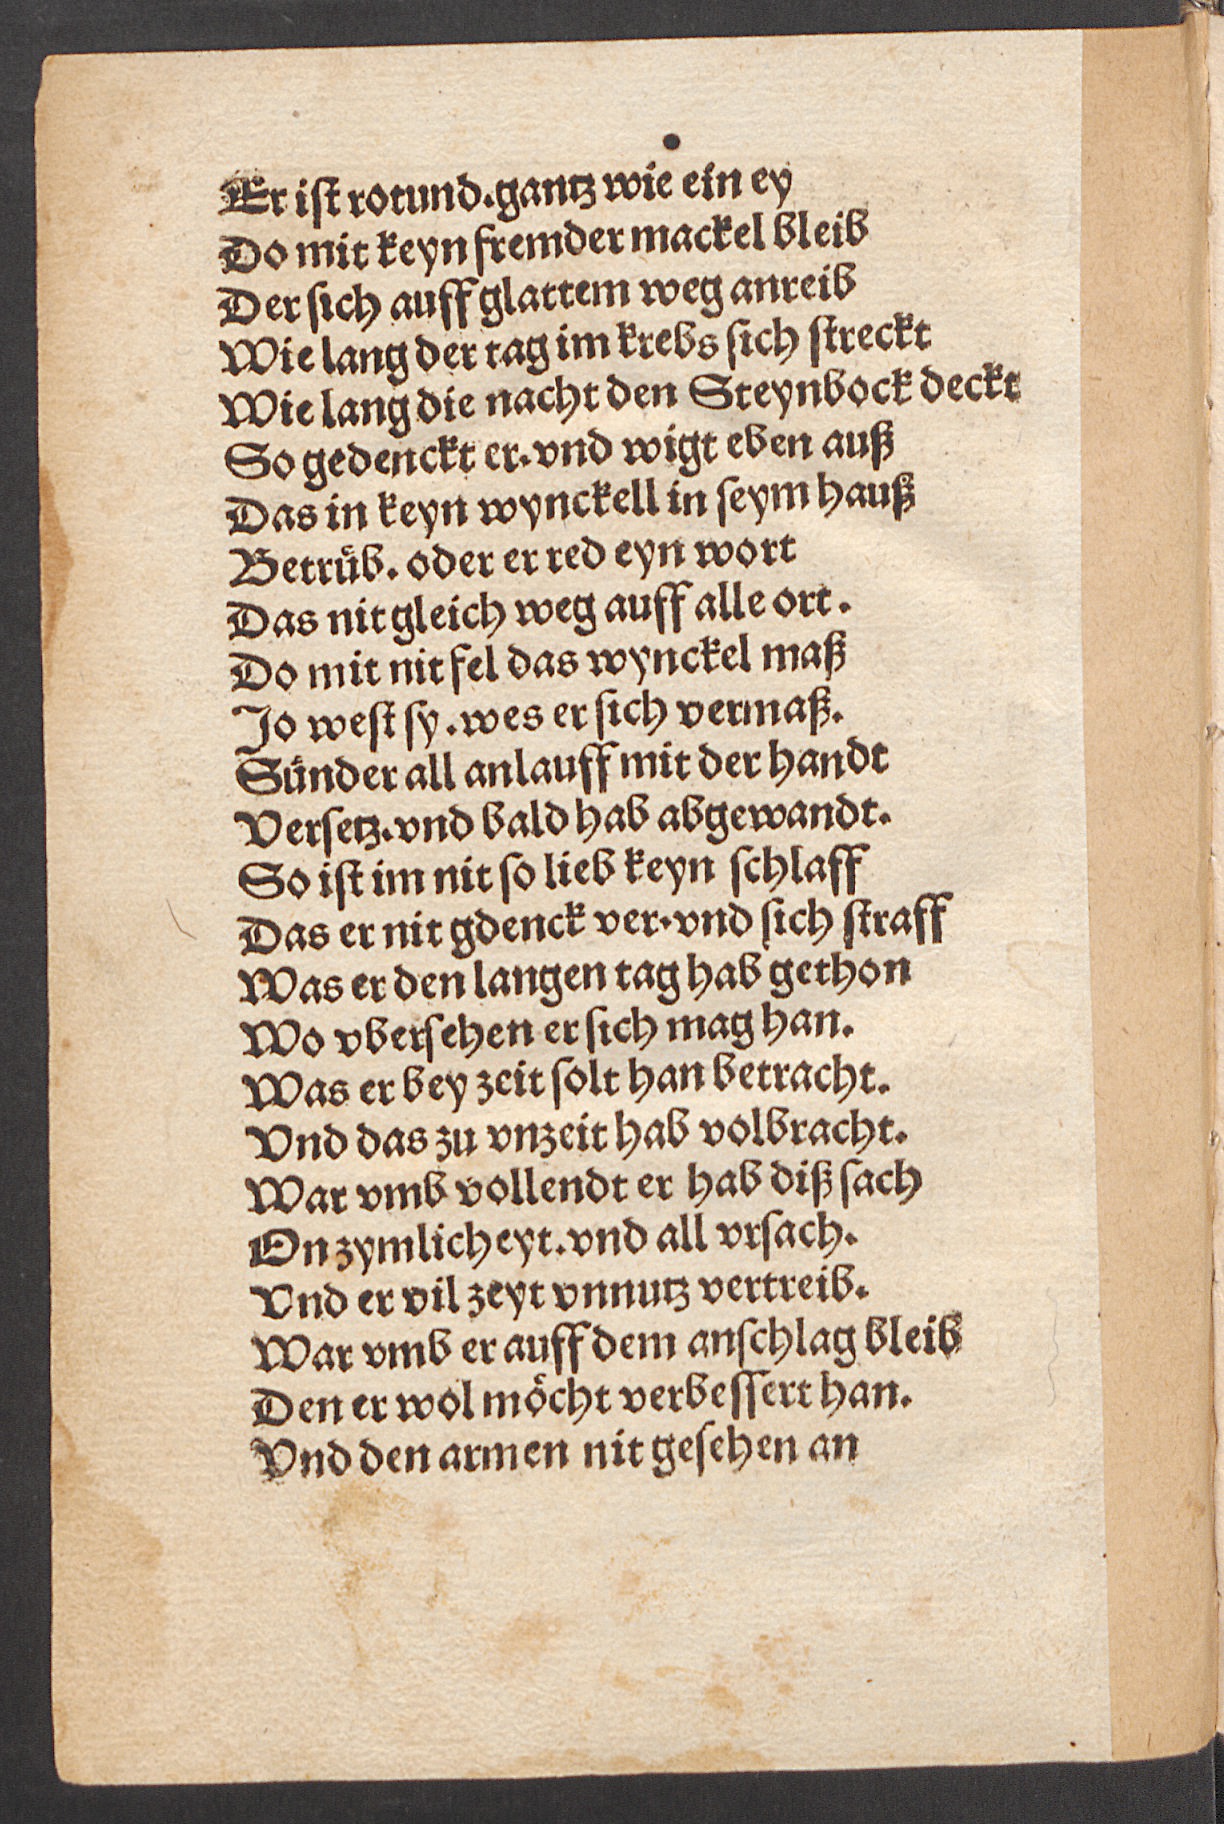 Er iſt rotund.gantz wie ein ey
Do mit keyn fremder mackel bleib
Der ſich auff glattem weg anreib
Wie lang der tag im krebs ſich ſtreckt
Wie lang die nacht den Steynbock deckt
So gedenckt er.vnd wigt eben auß
Das in keyn wynckell in ſeym hauß
Betruͤb. oder er red eyn wort
Das nit gleich weg auff alle ort.
Do mit nit fel das wynckel maß
Jo weſt ſy.wes er ſich vermaß.
Suͤnder all anlauff mit der handt
Verſetz.vnd bald hab abgewandt.
So iſt im nit ſo lieb keyn ſchlaff
Das er nit gdenck ver.vnd ſich ſtraff
Was er den langen tag hab gethon
Wo vberſehen er ſich mag han.
Was er bey zeit ſolt han betracht.
Vnd das zu vnzeit hab volbracht.
War vmb vollendt er hab diß ſach
On zymlicheyt.vnd all vrſach.
Vnd er vil zeyt vnnutz vertreib.
War vmb er auff dem anſchlag bleib
Den er wol moͤcht verbeſſert han.
Vnd den armen nit geſehen an